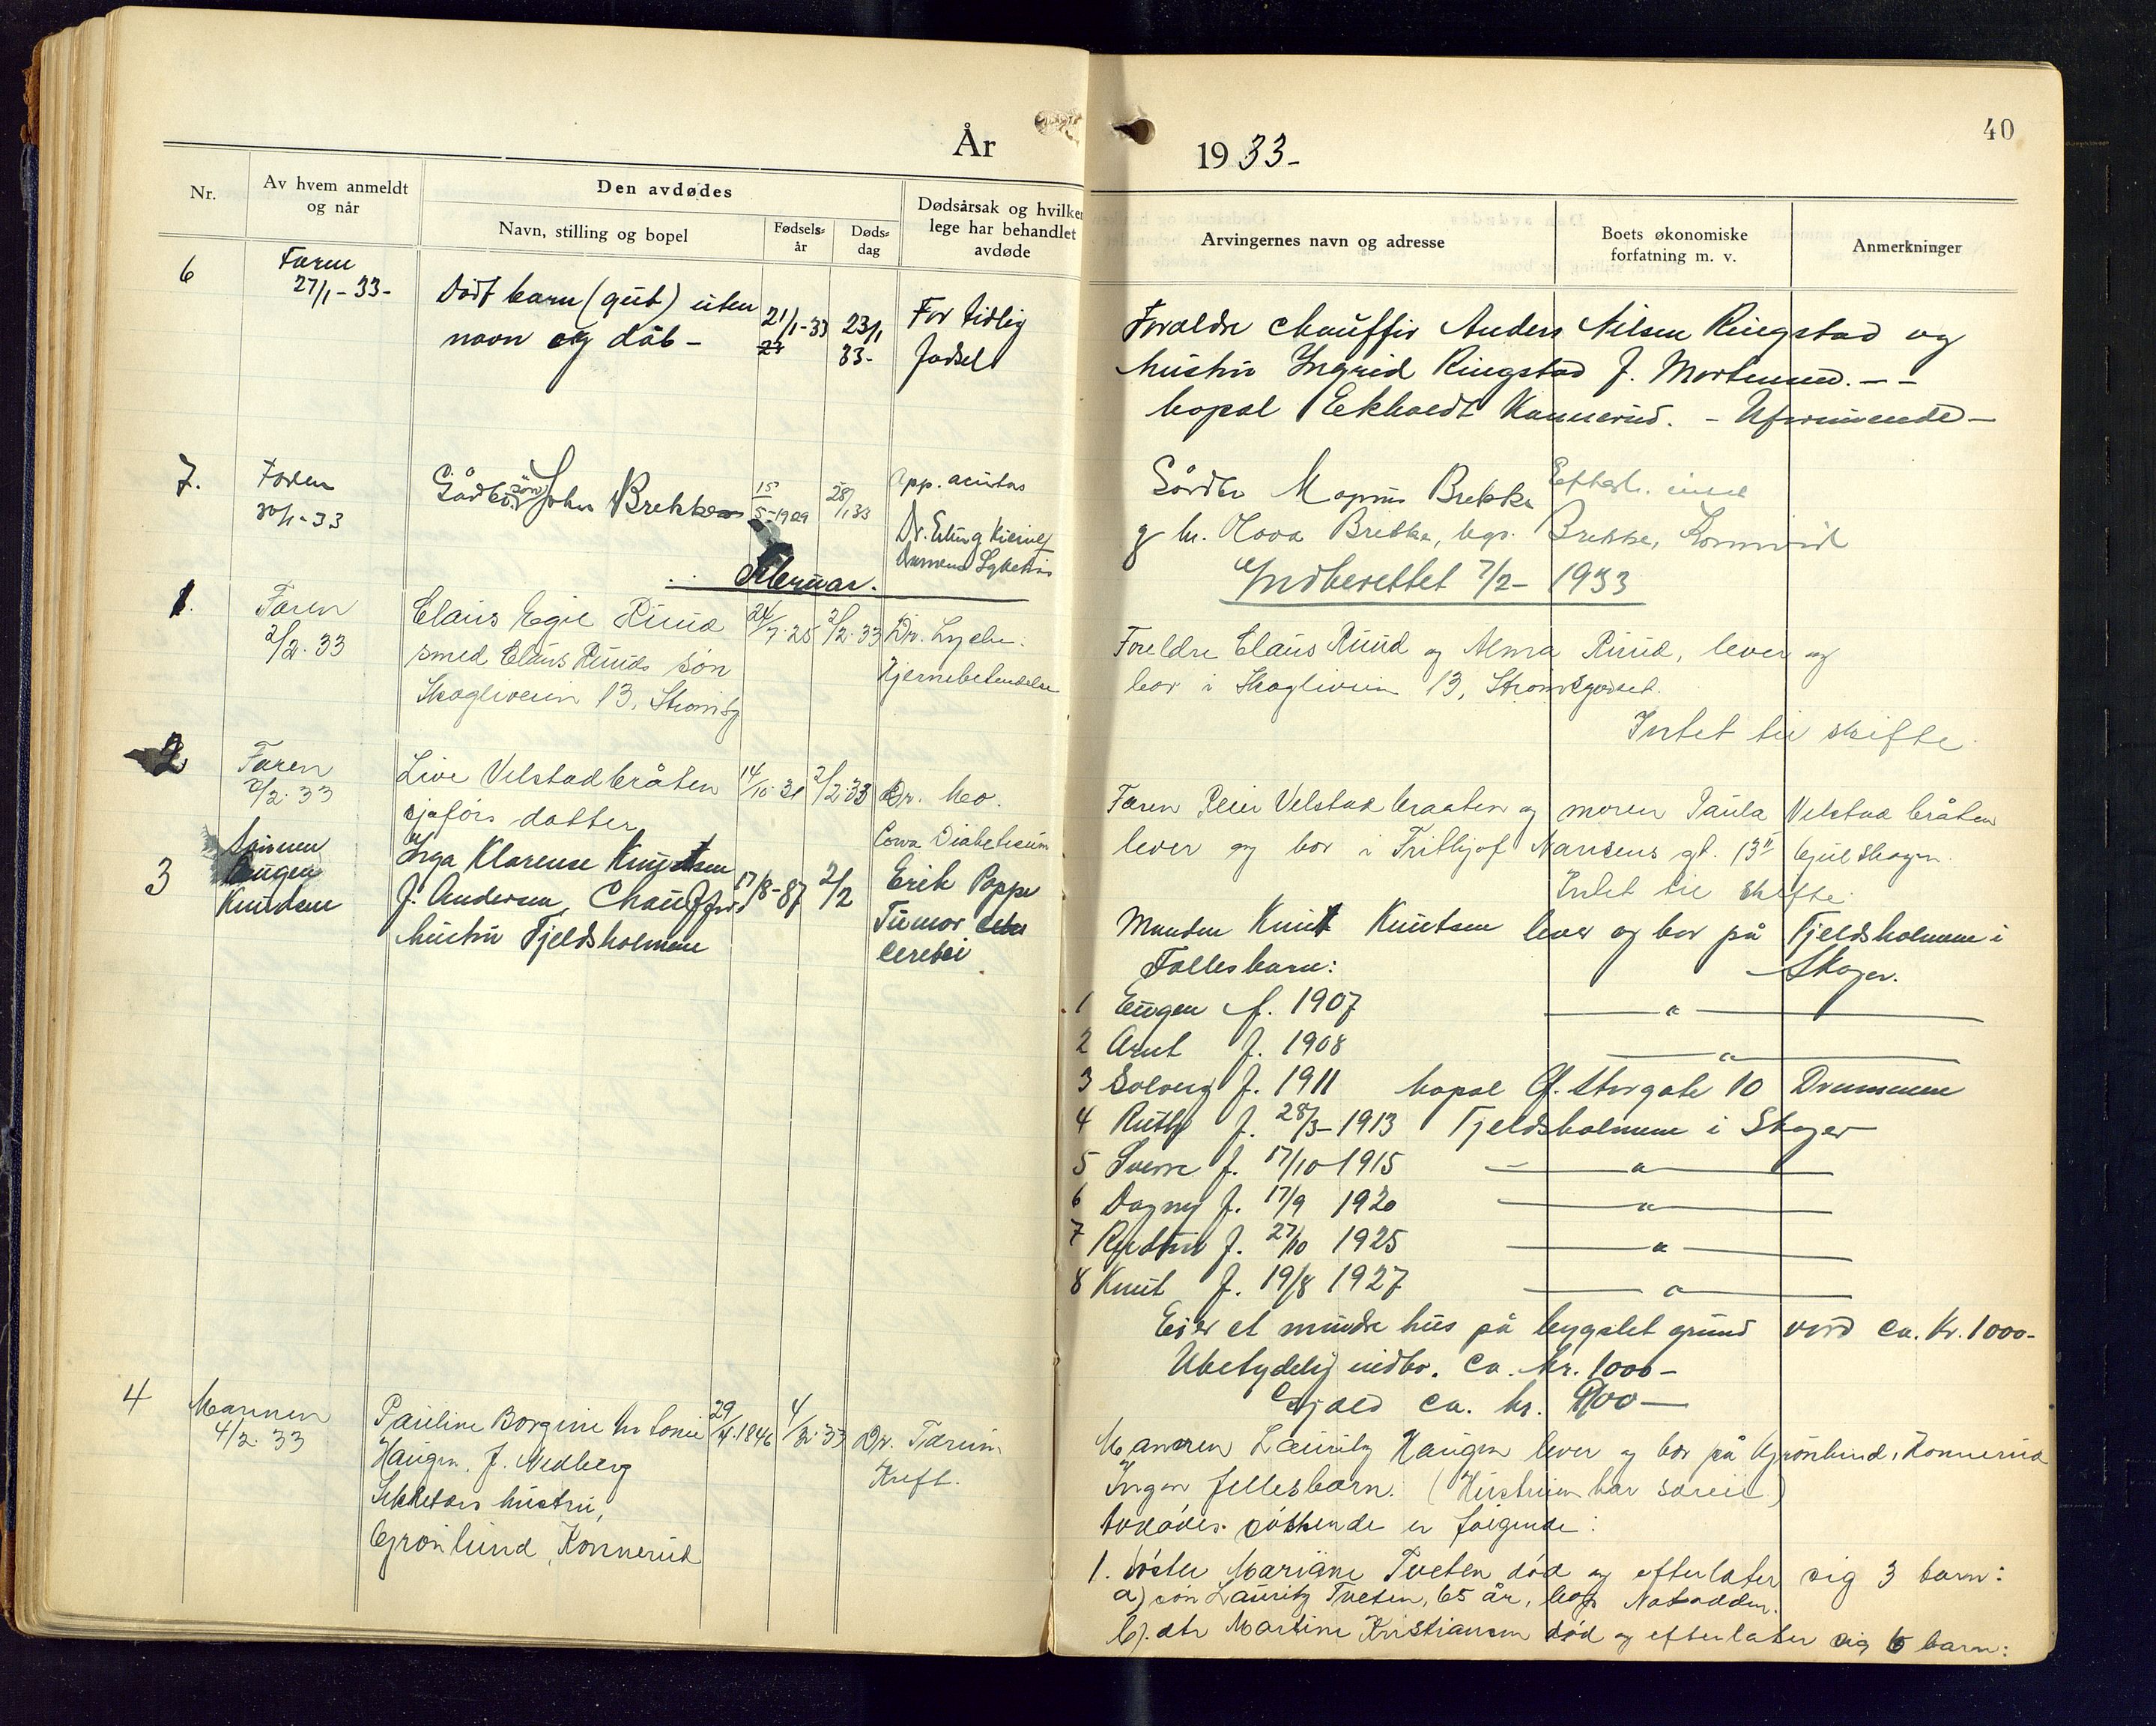 40
År 1933-
Nr.
Av hvem anmeldt og når
Den avdødes
Navn, stilling og bopel
Fødsels-år
Døds-dag
Dødsårsak og hvilken lege har behandlet avdøde
Arvingernes navn og adresse
Boets økonomiske forfatning m. v.
Anmerkninger
6
Faren
27/1-33-
Dødt barn (gut) uten
navn og dåb-
21/1-33
23/1
33-
For tidlig
fødsel
Foreldre chauffør Anders Nilsen Ringstad og
hustru Ingrid Ringstad f. Mortensen. - -
bopæl Ekholdt Konnerud. - Uformuende -
7.
Faren
30/1-33
Gårdbr. søn John Brekke
15/5-1909
28/1 33
App. acutas
Dr.
Drammens Sykehus
Gårdbr Magnus Brekke
g hu. Brekke, bop. Brekke, Konnerud
Indberettet 7/2- 1933
Februar.
1.
Faren
2/2.33
Claus Egil Ruud
smed Claus Ruuds søn
Skogliveien 13, Strømsg
24/7.25
2/2.33
Dr. Lyche.
Hjernebetendelse
Foreldre Claus Ruud og Alma Ruud, lever og
bor i Skogliveien 13, Strømsgodset.
Intet til skifte
2
Faren
2/2.33
Live Velstadbråten
sjåførs datter
14/10.31
2/2.33
Dr. Mo.
Coma Diabeticum
Faren Peder Velstadbraaten og moren Paula Velstadbråten
lever og bor i Frithjof Nansens gt. 13 Gulskogen.
Intet til skifte.
3
Sønnen
Eugen
Knutsen
Inga Klarense Knutsen
f. Andersen, Chauffør
hustru Fjeldsholmene
17/8-87
2/2
Erik Poppe
Tumor
cerebri
Manden Knut Knutsen lever og bor på Fjeldsholmene i
Skoger.
Fællesbarn:
1 Eugen f. 1907 — " —
2 Arnt f. 1908 — " —
3 Solveig f. 1911 bopæl Gl. Storgate 10 Drammen
4 Ruth f. 28/3-1913 Fjeldsholmene i Skoger
5 Sverre f. 17/10-1915 — " —
6 Dagny f. 17/9 1920 — " —
7 f. 27/10 1925 — " —
8 Knut f. 19/8 1927 — " —
Eier et mindre hus på bygslet grund verd ca. Kr. 1000-
Ubetydelig indbo. ca. kr. 1000-
Gjæld ca. kr.
4
Mannen
4/2.33
Pauline Borgine
Haugen, f. Nedberg
hustru,
Grønlund, Konnerud
29/4.1846
4/2.33
Dr. Tørum
Kreft.
Mannen Lauritz Haugen lever og bor på Grønlund, Konnerud
Ingen fellesbarn. (Hustruen har særeie)
Avdødes søskende er følgende:
1. søster Mariane Tveten død og efterlater sig 3 barn:
a) søn Lauritz Tveten, 65 år, bop Notodden.
b). dtr Martine Kristiansen død og efterlater sig 6 barn: